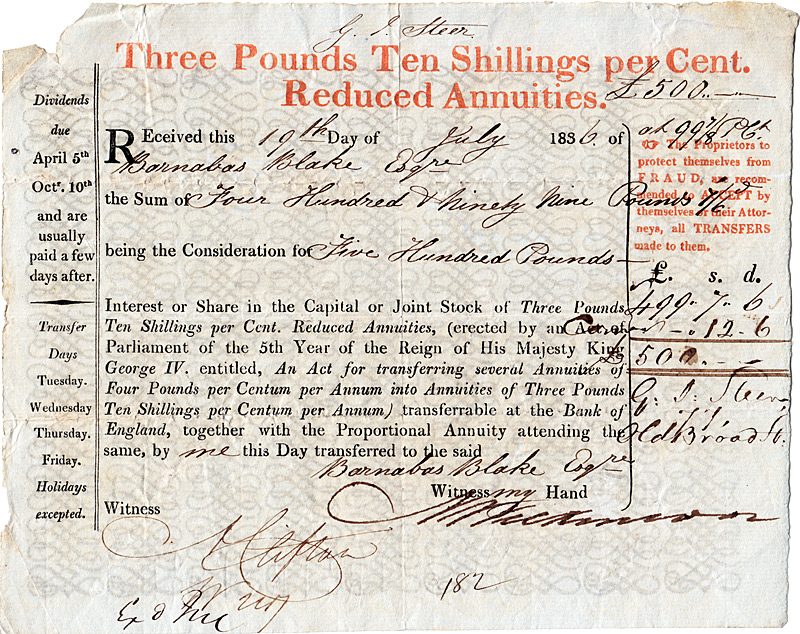 G. J. Steer
Three Pounds Ten Shillings per Cent.
Reduced Annuities.
£500.. —
Dividends
due
April 5th
Octr. 10th
and are
usually
paid a few
days after.
Transfer
Days
Tuesday.
Wednesday
Thursday.
Friday.
Holidays
excepted.
Received this 19th Day of July 1836. of
Barnabas Blake Esqre
the Sum of Four Hundred & Ninety Nine Pounds 7/6
being the Consideration for Five Hundred Pounds —
Interest or Share in the Capital or Joint Stock of Three Pounds
Ten Shillings per Cent. Reduced Annuities, (erected by an Act of
Parliament of the 5th Year of the Reign of His Majesty King
George IV. entitled, An Act for transferring several Annuities of
Four Pounds per Centum per Annum into Annuities of Three Pounds
Ten Shillings per Centum per Annum) transferrable at the Bank of
England, together with the Proportional Annuity attending the
same, by me this Day transferred to the said
Barnabas Blake Esqre
Witness my Hand
Witness
A Clifton
182
at 99 7/8 P Ct
☞ The Proprietors to
protect themselves from
FRAUD, are recom-
mended to ACCEPT by
themselves or their Attor-
neys, all TRANSFERS
made to them.
£. s. d.
499.. 7.. 6
— .. 12.. 6
£500.. — —
G. J. Steer
Old Broad St.